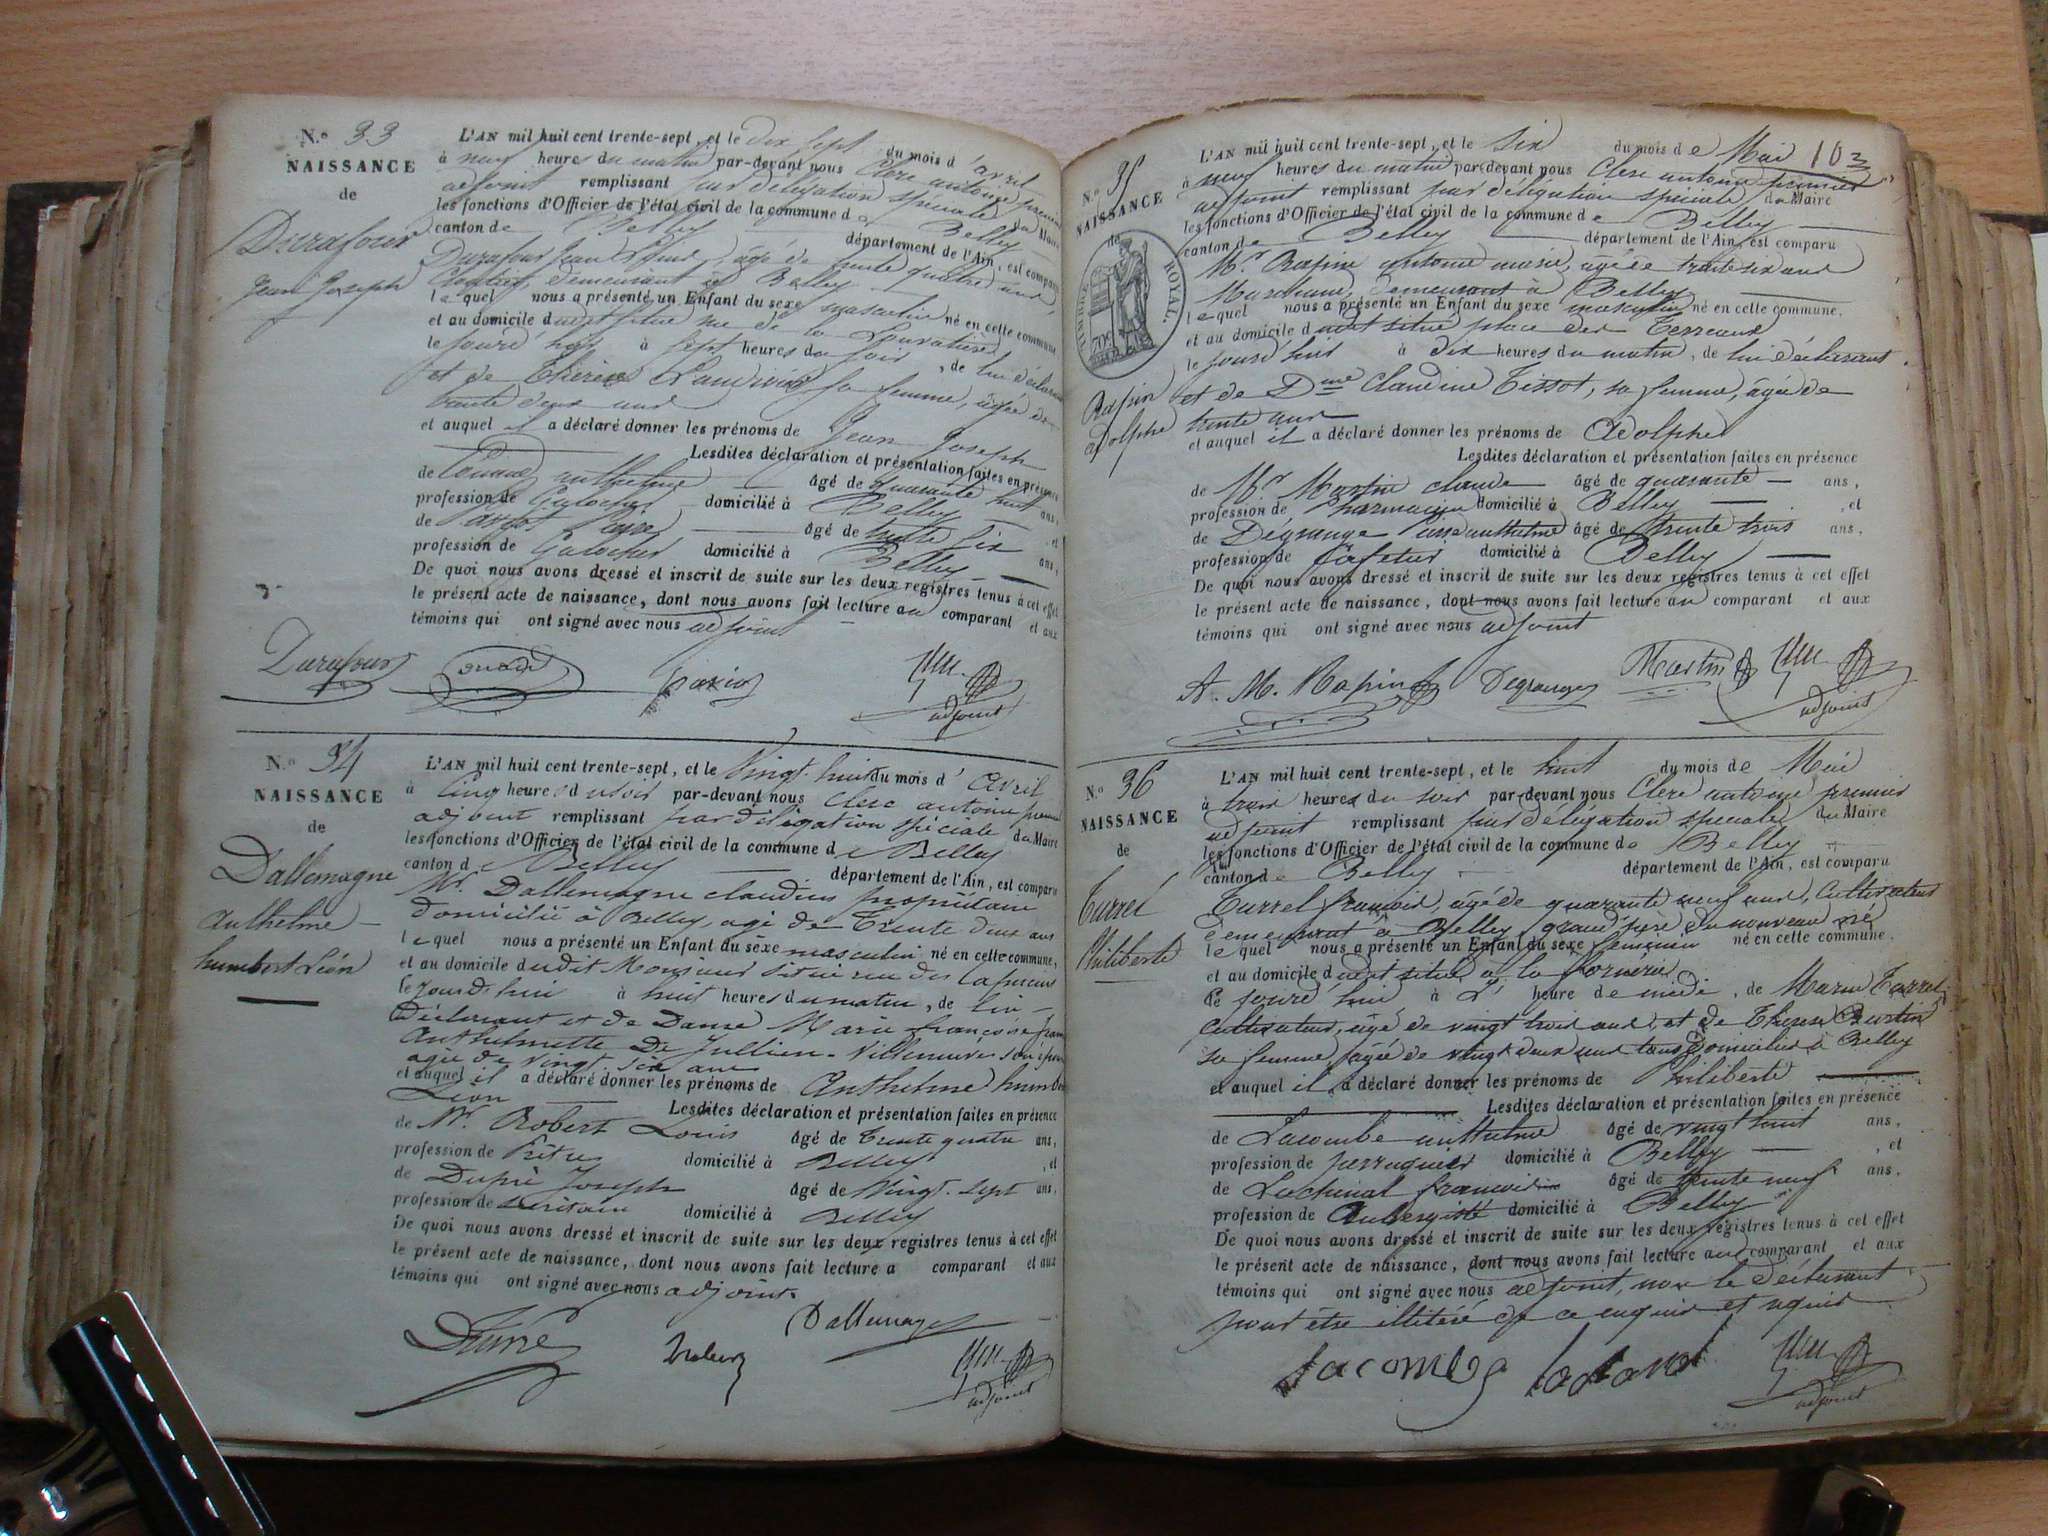 N.o 33
NAISSANCE
de
Durafour
Jean Joseph
L'AN mil huit cent trente-sept, et le dix sept du mois d'avril
à neuf heures du matin par-devant nous Clerc antoine premier
adjoint remplissant par délégation spéciale du Maire
les fonctions d'Officier de l'état civil de la commune de Belley
canton de Belley département de l'Ain, est comparu
Durafour Jean âgé de trente quatre ans,
demeurant à Belley
lequel nous a présenté un Enfant du sexe masculin né en cette commune
et au domicile dudit situé rue de la
le jourd'hui à sept heures du , de lui déclarant
et de Thérèse sa femme, âgée de
trente deux ans
et auquel il a déclaré donner les prénoms de Jean Joseph
Lesdites déclaration et présentation faites en présence
de anthelme âgé de quarante huit ans,
profession de Galocher domicilié à Belley , et
de âgé de trente six ans,
profession de Galocher domicilié à Belley
De quoi nous avons dressé et inscrit de suite sur les deux registres tenus à cet effet
le présent acte de naissance, dont nous avons fait lecture au comparant et aux
témoins qui ont signé avec nous adjoint
Durafour
adjoint
N.o 34
NAISSANCE
de
Dallemagne
Anthelme
humbert Léon
L'AN mil huit cent trente-sept, et le Vingt-huit du mois d'Avril
à Cinq heures du soir par-devant nous Clerc antoine premier
adjoint remplissant par délégation spéciale du Maire
les fonctions d'Officier de l'état civil de la commune de Belley
canton de Belley département de l'Ain, est comparu
Mr. Dallemagne claudius propriétaire
domicilié à Belley, agé de Trente deux ans
lequel nous a présenté un Enfant du sexe masculin né en cette commune,
et au domicile dudit Monsieur situé rue des Capucins
le jourd'hui à huit heures du matin, de lui
Déclarant et de Dame Marie françoise
Anthelmette De Jullien-Villeneuve son épouse
agée de Vingt-six ans
et auquel il a déclaré donner les prénoms de Anthelme humbert
Léon
Lesdites déclaration et présentation faites en présence
de Mr. Robert Louis âgé de Trente quatre ans,
profession de Prêtre domicilié à Belley , et
de Dupré Joseph âgé de Vingt-sept ans,
profession de domicilié à Belley
De quoi nous avons dressé et inscrit de suite sur les deux registres tenus à cet effet
le présent acte de naissance, dont nous avons fait lecture a comparant et aux
témoins qui ont signé avec nous adjoint.
Dallemagne
adjoint
103
N.o 35
NAISSANCE
de
TIMBRE ROYAL.
Rapin
adolphe
L'AN mil huit cent trente-sept, et le six du mois de Mai
à neuf heures du matin par-devant nous Clerc antoine premier
adjoint remplissant par délégation spéciale du Maire
les fonctions d'Officier de l'état civil de la commune de Belley
canton de Belley département de l'Ain, est comparu
Mr. Rapin antoine marie, âgé de trente six ans
Marchand, demeurant à Belley
lequel nous a présenté un Enfant du sexe masculin né en cette commune,
et au domicile dudit situé place des Terreaux
le jourd'hui à dix heures du matin, de lui déclarant
et de Dme Claudine Tissot, sa femme, âgée de
trente ans
et auquel il a déclaré donner les prénoms de Adolphe
Lesdites déclaration et présentation faites en présence
de Mr. Martin claude âgé de quarante ans,
profession de Pharmacien domicilié à Belley , et
de Dégrange Pierre anthelme âgé de trente trois ans,
profession de Cafetier domicilié à Belley
De quoi nous avons dressé et inscrit de suite sur les deux registres tenus à cet effet
le présent acte de naissance, dont nous avons fait lecture au comparant et aux
témoins qui ont signé avec nous adjoint
A. M. Rapin Degrange Martin
adjoint
N.o 36
NAISSANCE
de
Turrel
Philiberte
L'AN mil huit cent trente-sept, et le huit du mois de Mai
à trois heures du soir par-devant nous Clerc antoine premier
adjoint remplissant par délégation spéciale du Maire
les fonctions d'Officier de l'état civil de la commune de Belley
canton de Belley département de l'Ain, est comparu
Turrel françois, âgé de quarante neuf ans, Cultivateur
demeurant à Belley, grand père du nouveau né
lequel nous a présenté un Enfant du sexe féminin né en cette commune.
et au domicile dudit situé à la
le jourd'hui à heure de midi, de Turrel
Cultivateur, âgé de vingt trois ans, et de Thérèse
sa femme, âgée de vingt deux ans tous domiciliés à Belley
et auquel il a déclaré donner les prénoms de Philiberte
Lesdites déclaration et présentation faites en présence
de Lacombe anthelme âgé de vingt huit ans,
profession de perruquier domicilié à Belley , et
de françois âgé de trente neuf ans,
profession de Aubergiste domicilié à Belley
De quoi nous avons dressé et inscrit de suite sur les deux registres tenus à cet effet
le présent acte de naissance, dont nous avons fait lecture au comparant et aux
témoins qui ont signé avec nous adjoint, non le déclarant
pour être illitéré de ce enquis et requis
Lacombe
adjoint